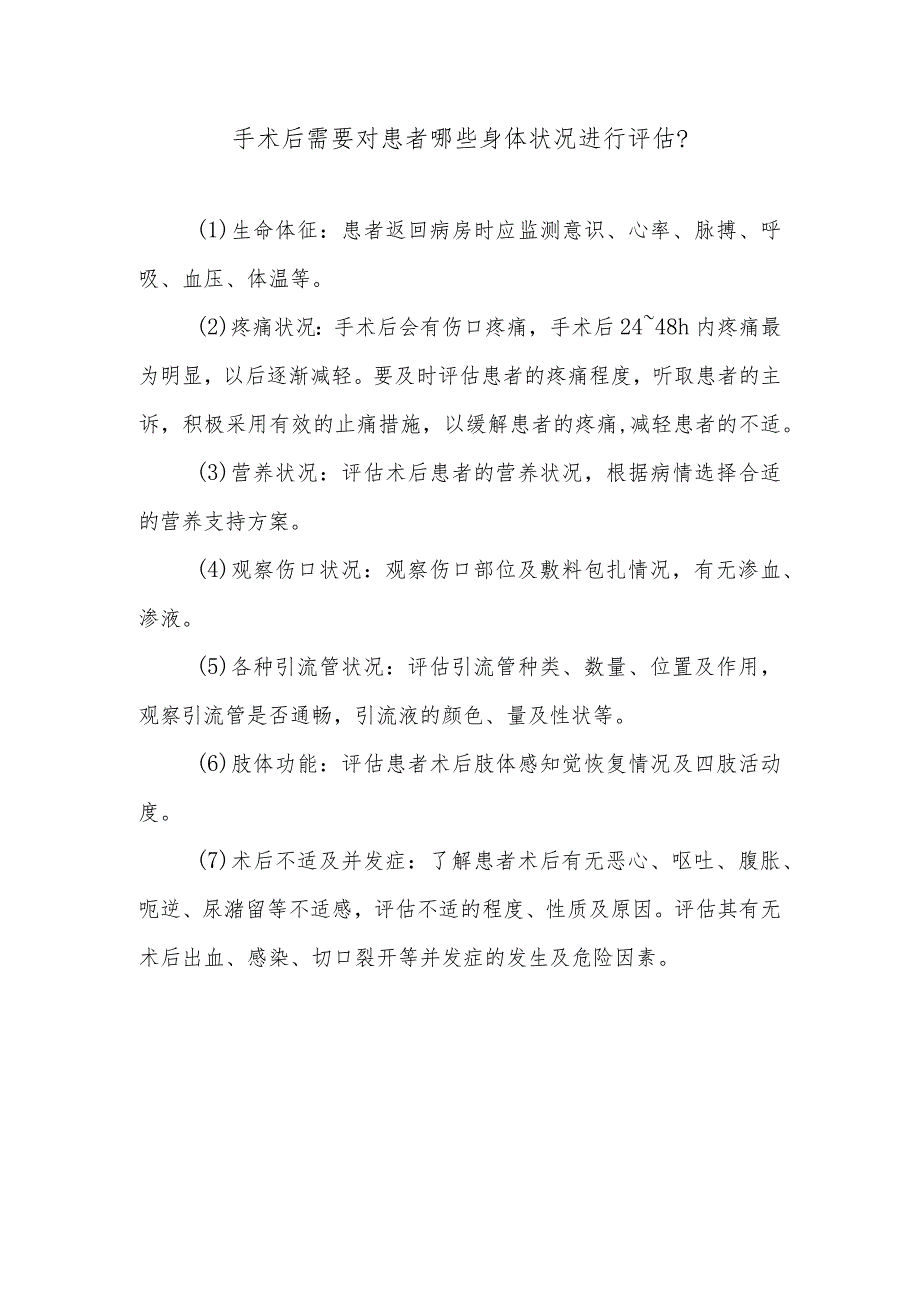 手术后需要对患者哪些身体状况进行评估?
(1)生命体征：患者返回病房时应监测意识、心率、脉搏、呼
吸、血压、体温等。
(2)疼痛状况：手术后会有伤口疼痛，手术后24~48h内疼痛最
为明显，以后逐渐减轻。要及时评估患者的疼痛程度，听取患者的主
诉，积极采用有效的止痛措施，以缓解患者的疼痛,减轻患者的不适。
(3)营养状况：评估术后患者的营养状况，根据病情选择合适
的营养支持方案。
(4)观察伤口状况：观察伤口部位及敷料包扎情况，有无渗血、
渗液。
(5)各种引流管状况：评估引流管种类、数量、位置及作用，
观察引流管是否通畅，引流液的颜色、量及性状等。
(6)肢体功能：评估患者术后肢体感知觉恢复情况及四肢活动
度。
(7)术后不适及并发症：了解患者术后有无恶心、呕吐、腹胀、
呃逆、尿潴留等不适感，评估不适的程度、性质及原因。评估其有无
术后出血、感染、切口裂开等并发症的发生及危险因素。